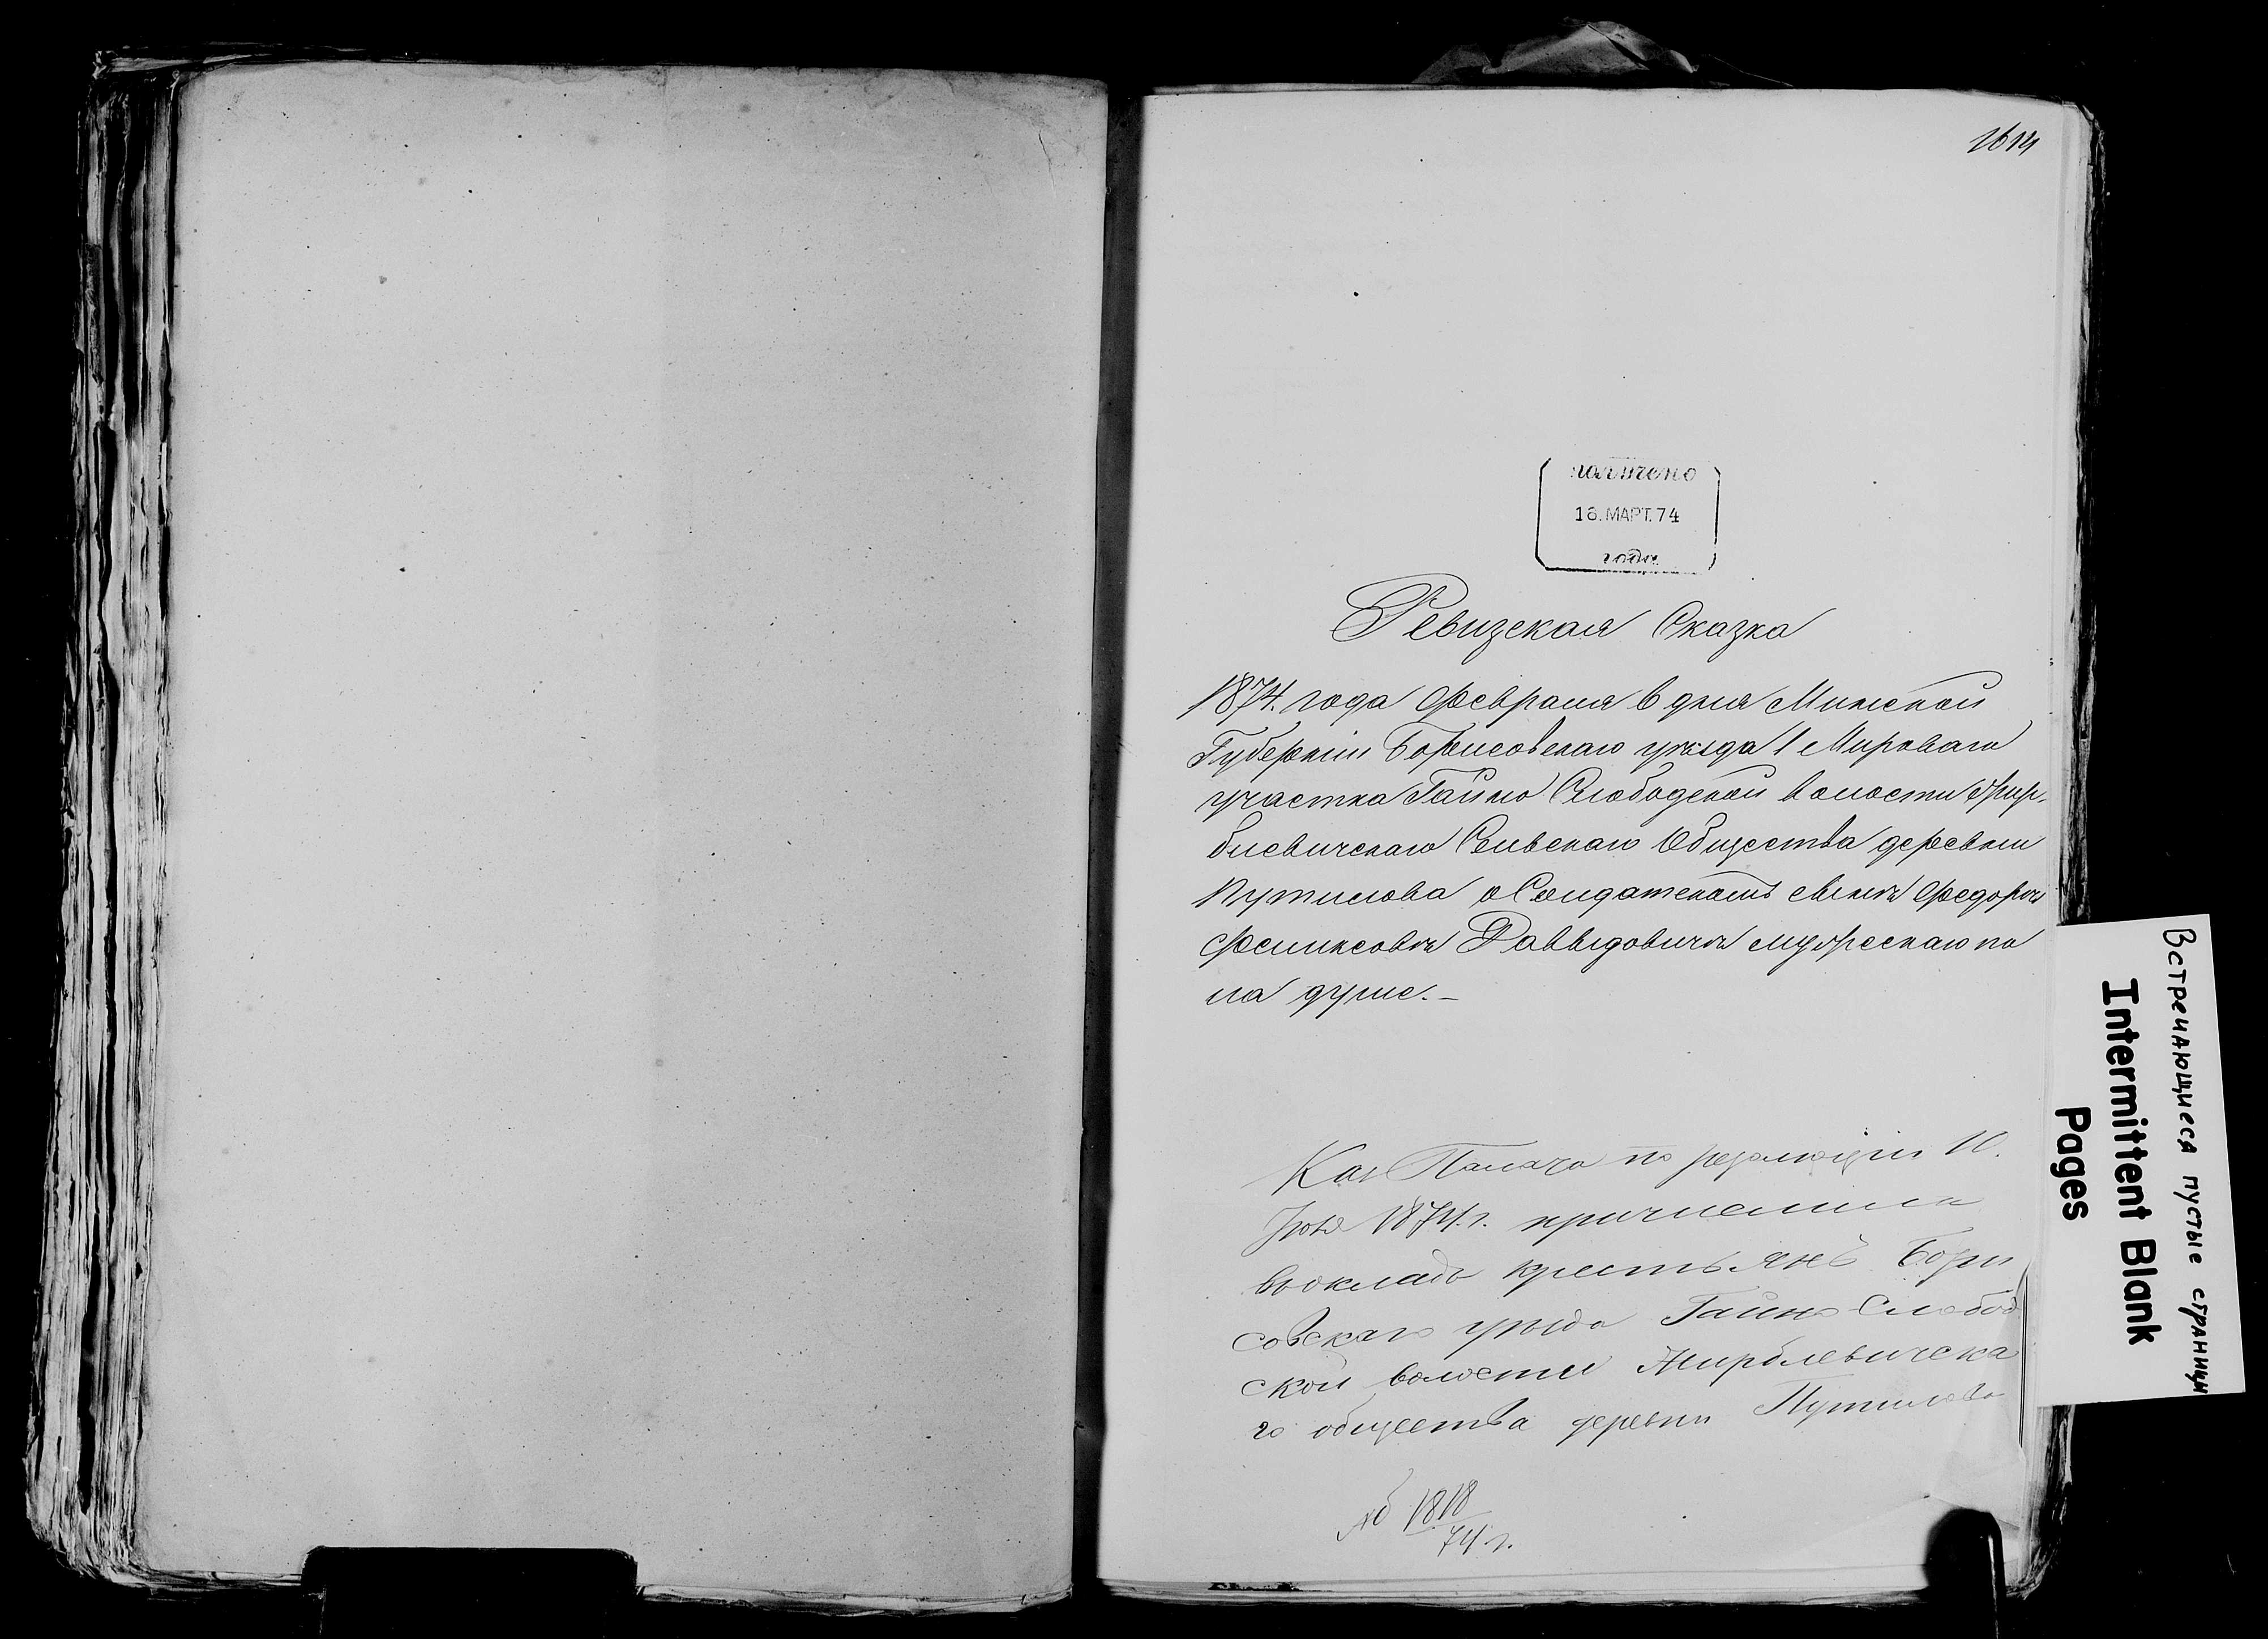 1614
получено
16.МАРТ.74
года
Ревизская Сказка
1874. года Февраля 6 дня Минской
Губерніи Борисовскаго уѣзда 1 Мироваго
участка Гайно Слободской волости Жир-
блевичскаго Сельскаго Общества деревни
Путилова о Солдатскомъ сынѣ Федорѣ
Феликсовѣ Давыдовичѣ мужескаго по
ла душе.-
Каз Палата по резолюціи 10.
1874.г. причислила
въ окладъ крестьянъ Бори
совскаго уѣзда Гайно Слобод
ской волости Жирблевичска
го общества деревни Путилова
№ 1818
74 г.
Встречающиеся пустые страницы
Intermittent Blank
Pages